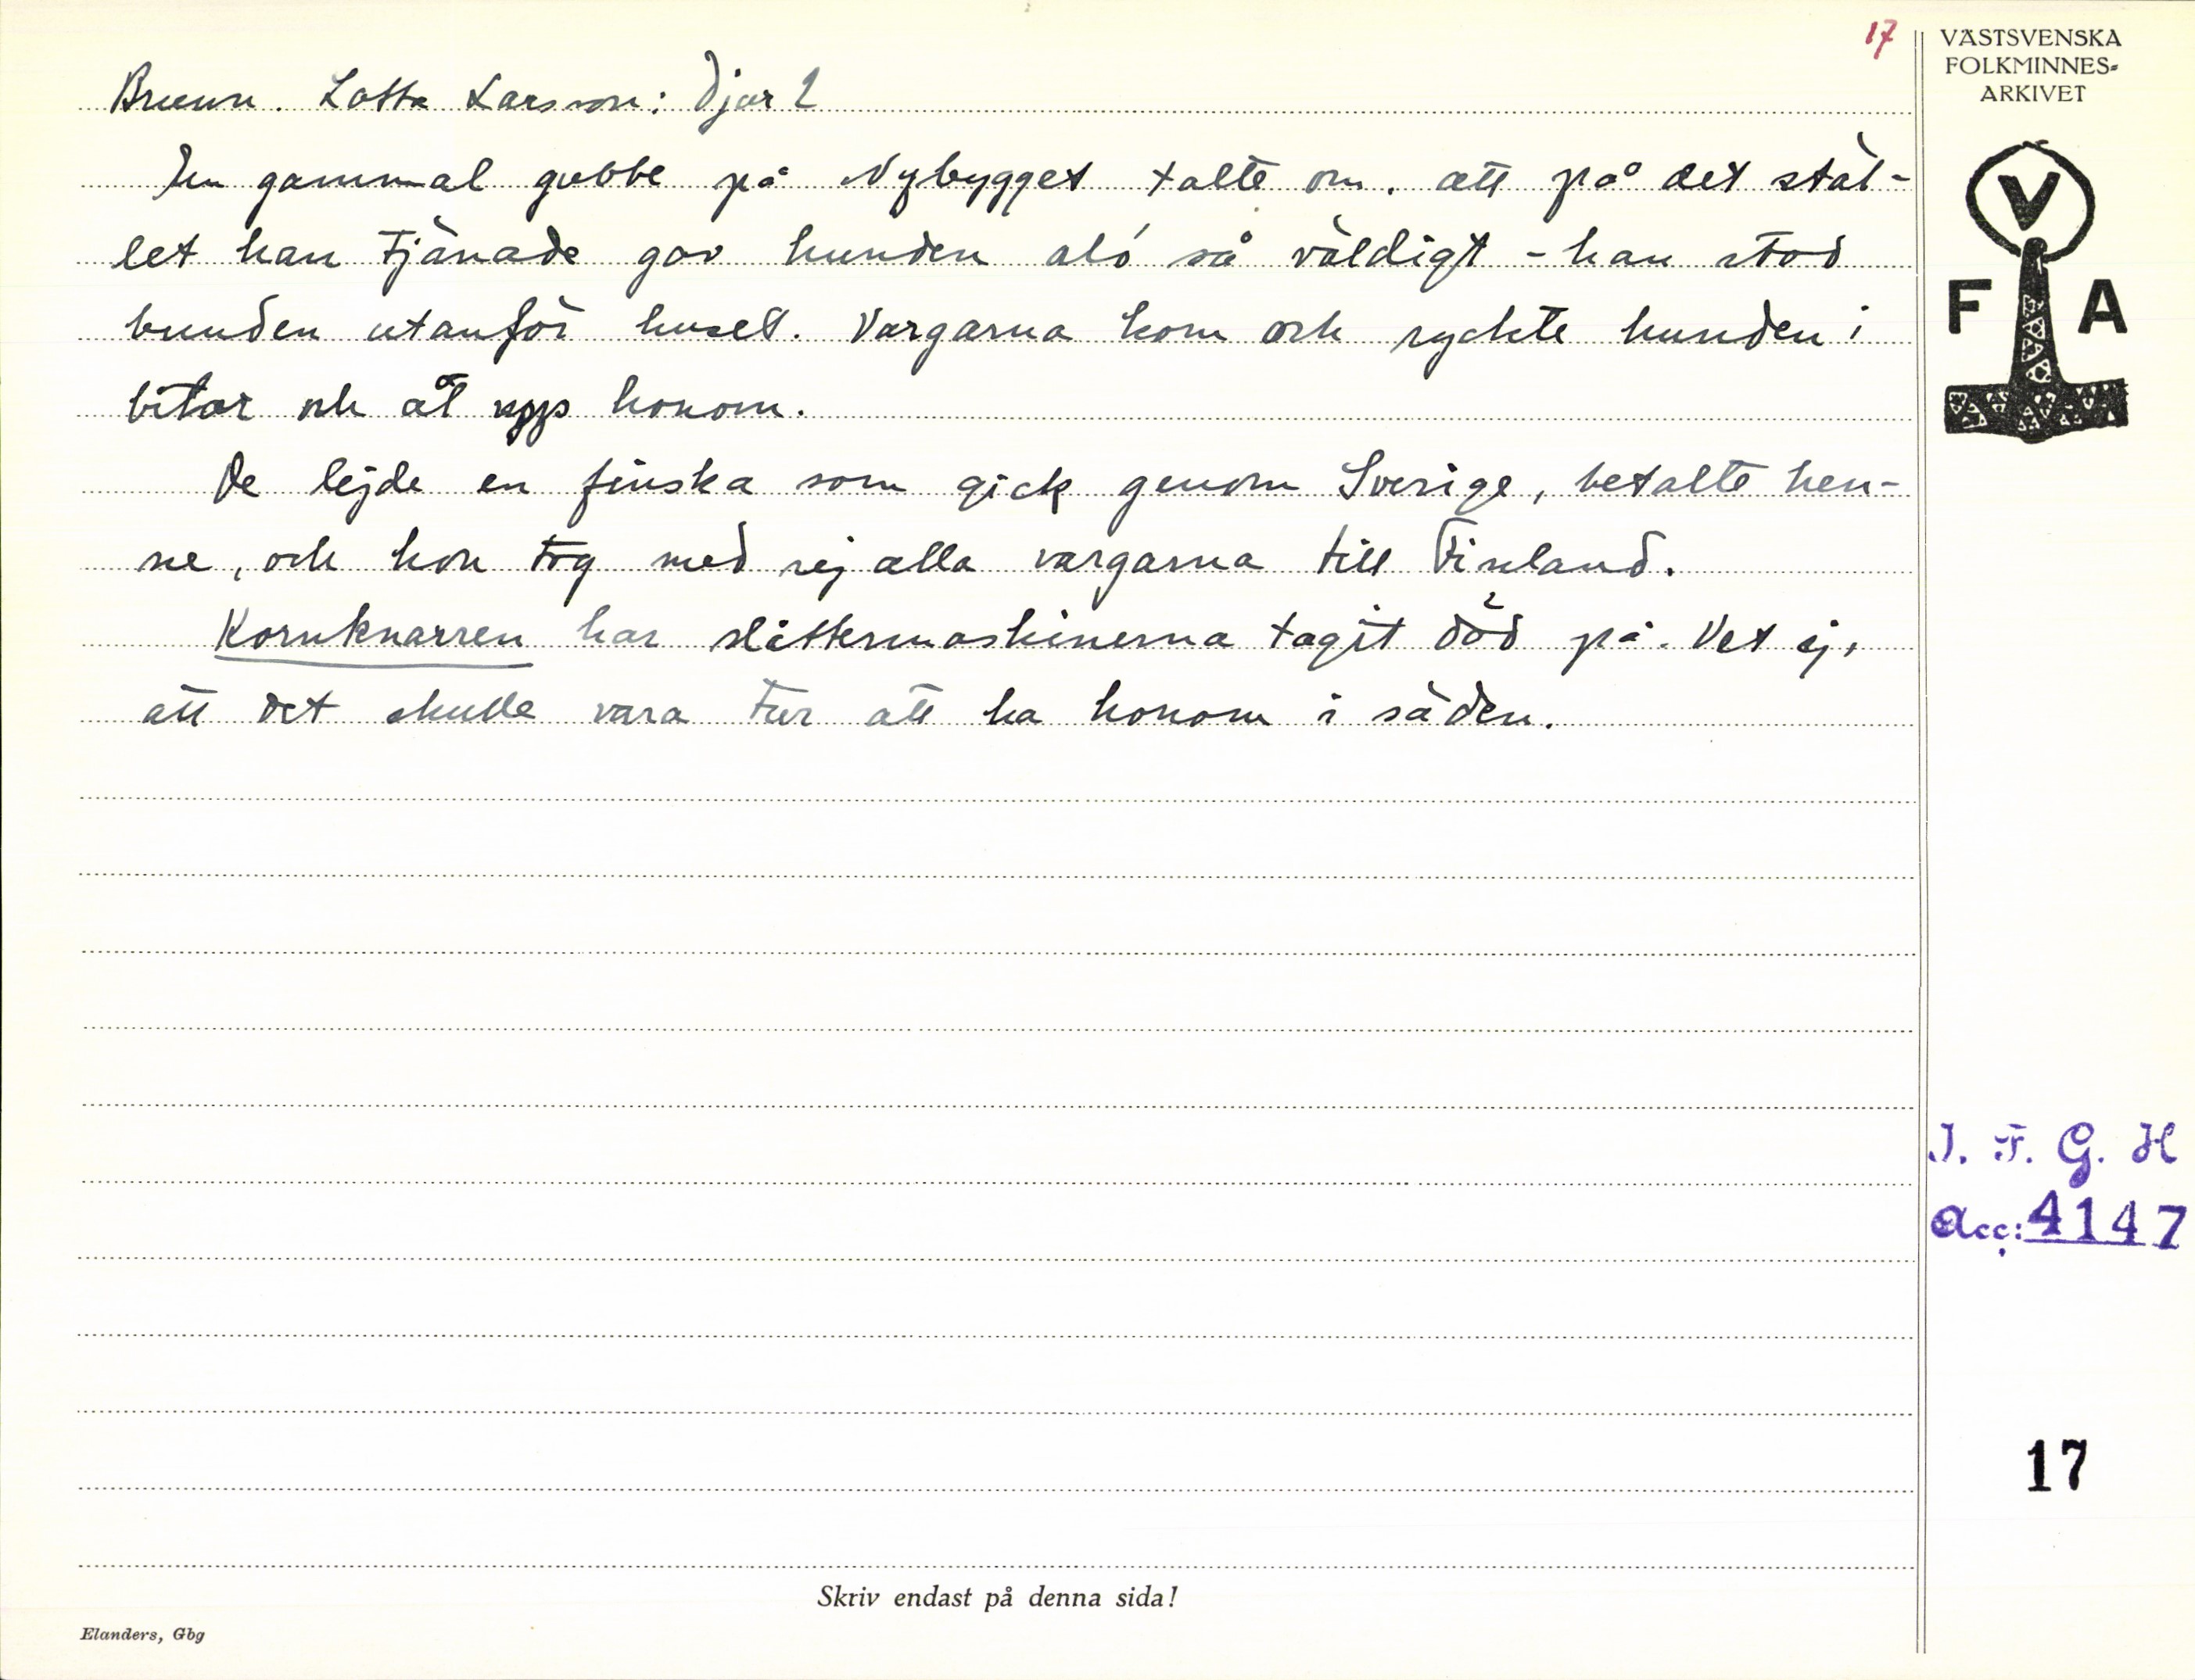 17
VÄSTSVENSKA
FOLKMINNES-
ARKIVET
Brunn. Lotta Larsson: Djur 2
En gammal gubbe på Nybygget talte om, att på det stäl-
let han tjänade gav hunden ald så väldigt - han stod
bunden utanför huset. Vargarna kom och ryckte hunden i
bitar och åt upp honom.
De lejde en finska som gick genom Sverige, betalte hen-
ne, och hon tog med sej alla vargarna till Finland.
Kornknarren har slåttermaskinerna tagit död på. Vet ej,
att det skulle vara tur att ha honom i säden.
V
F A
I. F. G. H
Acc: 4147
17
Skriv endast på denna sida!
Elanders, Gbg